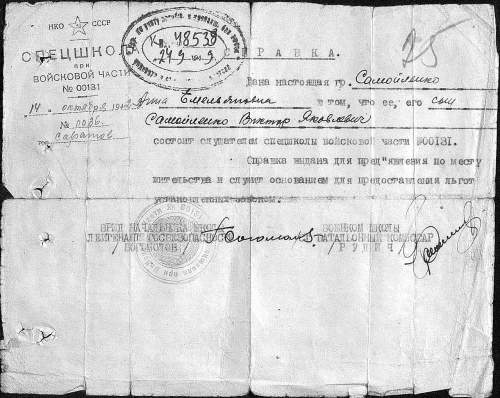 НКО СССР
СПЕЦШКОЛА
при
ВОЙСКОВОЙ ЧАСТИ
№ 00131
14 октября
№ 1036
Саратов
К № 48538
24.9
СПРАВКА.
25
Дана настоящая гр. Самойленко
Анна Емельяновна в том, что ее, его сын
Самойленко Виктор Яковлевич
состоит слушателем спецшколы войсковой части №00131.
Справка выдана для пред"явления по месту
жительства и служит основанием для предоставления льгот
установленных
ВРИД НАЧАЛЬНИКА ШКОЛЫ
ЛЕЙТЕНАНТ ГОСБЕЗОПАСНОСТИ
ВОЕНКОМ ШКОЛЫ
БАТАЛЬОННЫЙ КОМИССАР
/РУЛИЧ/